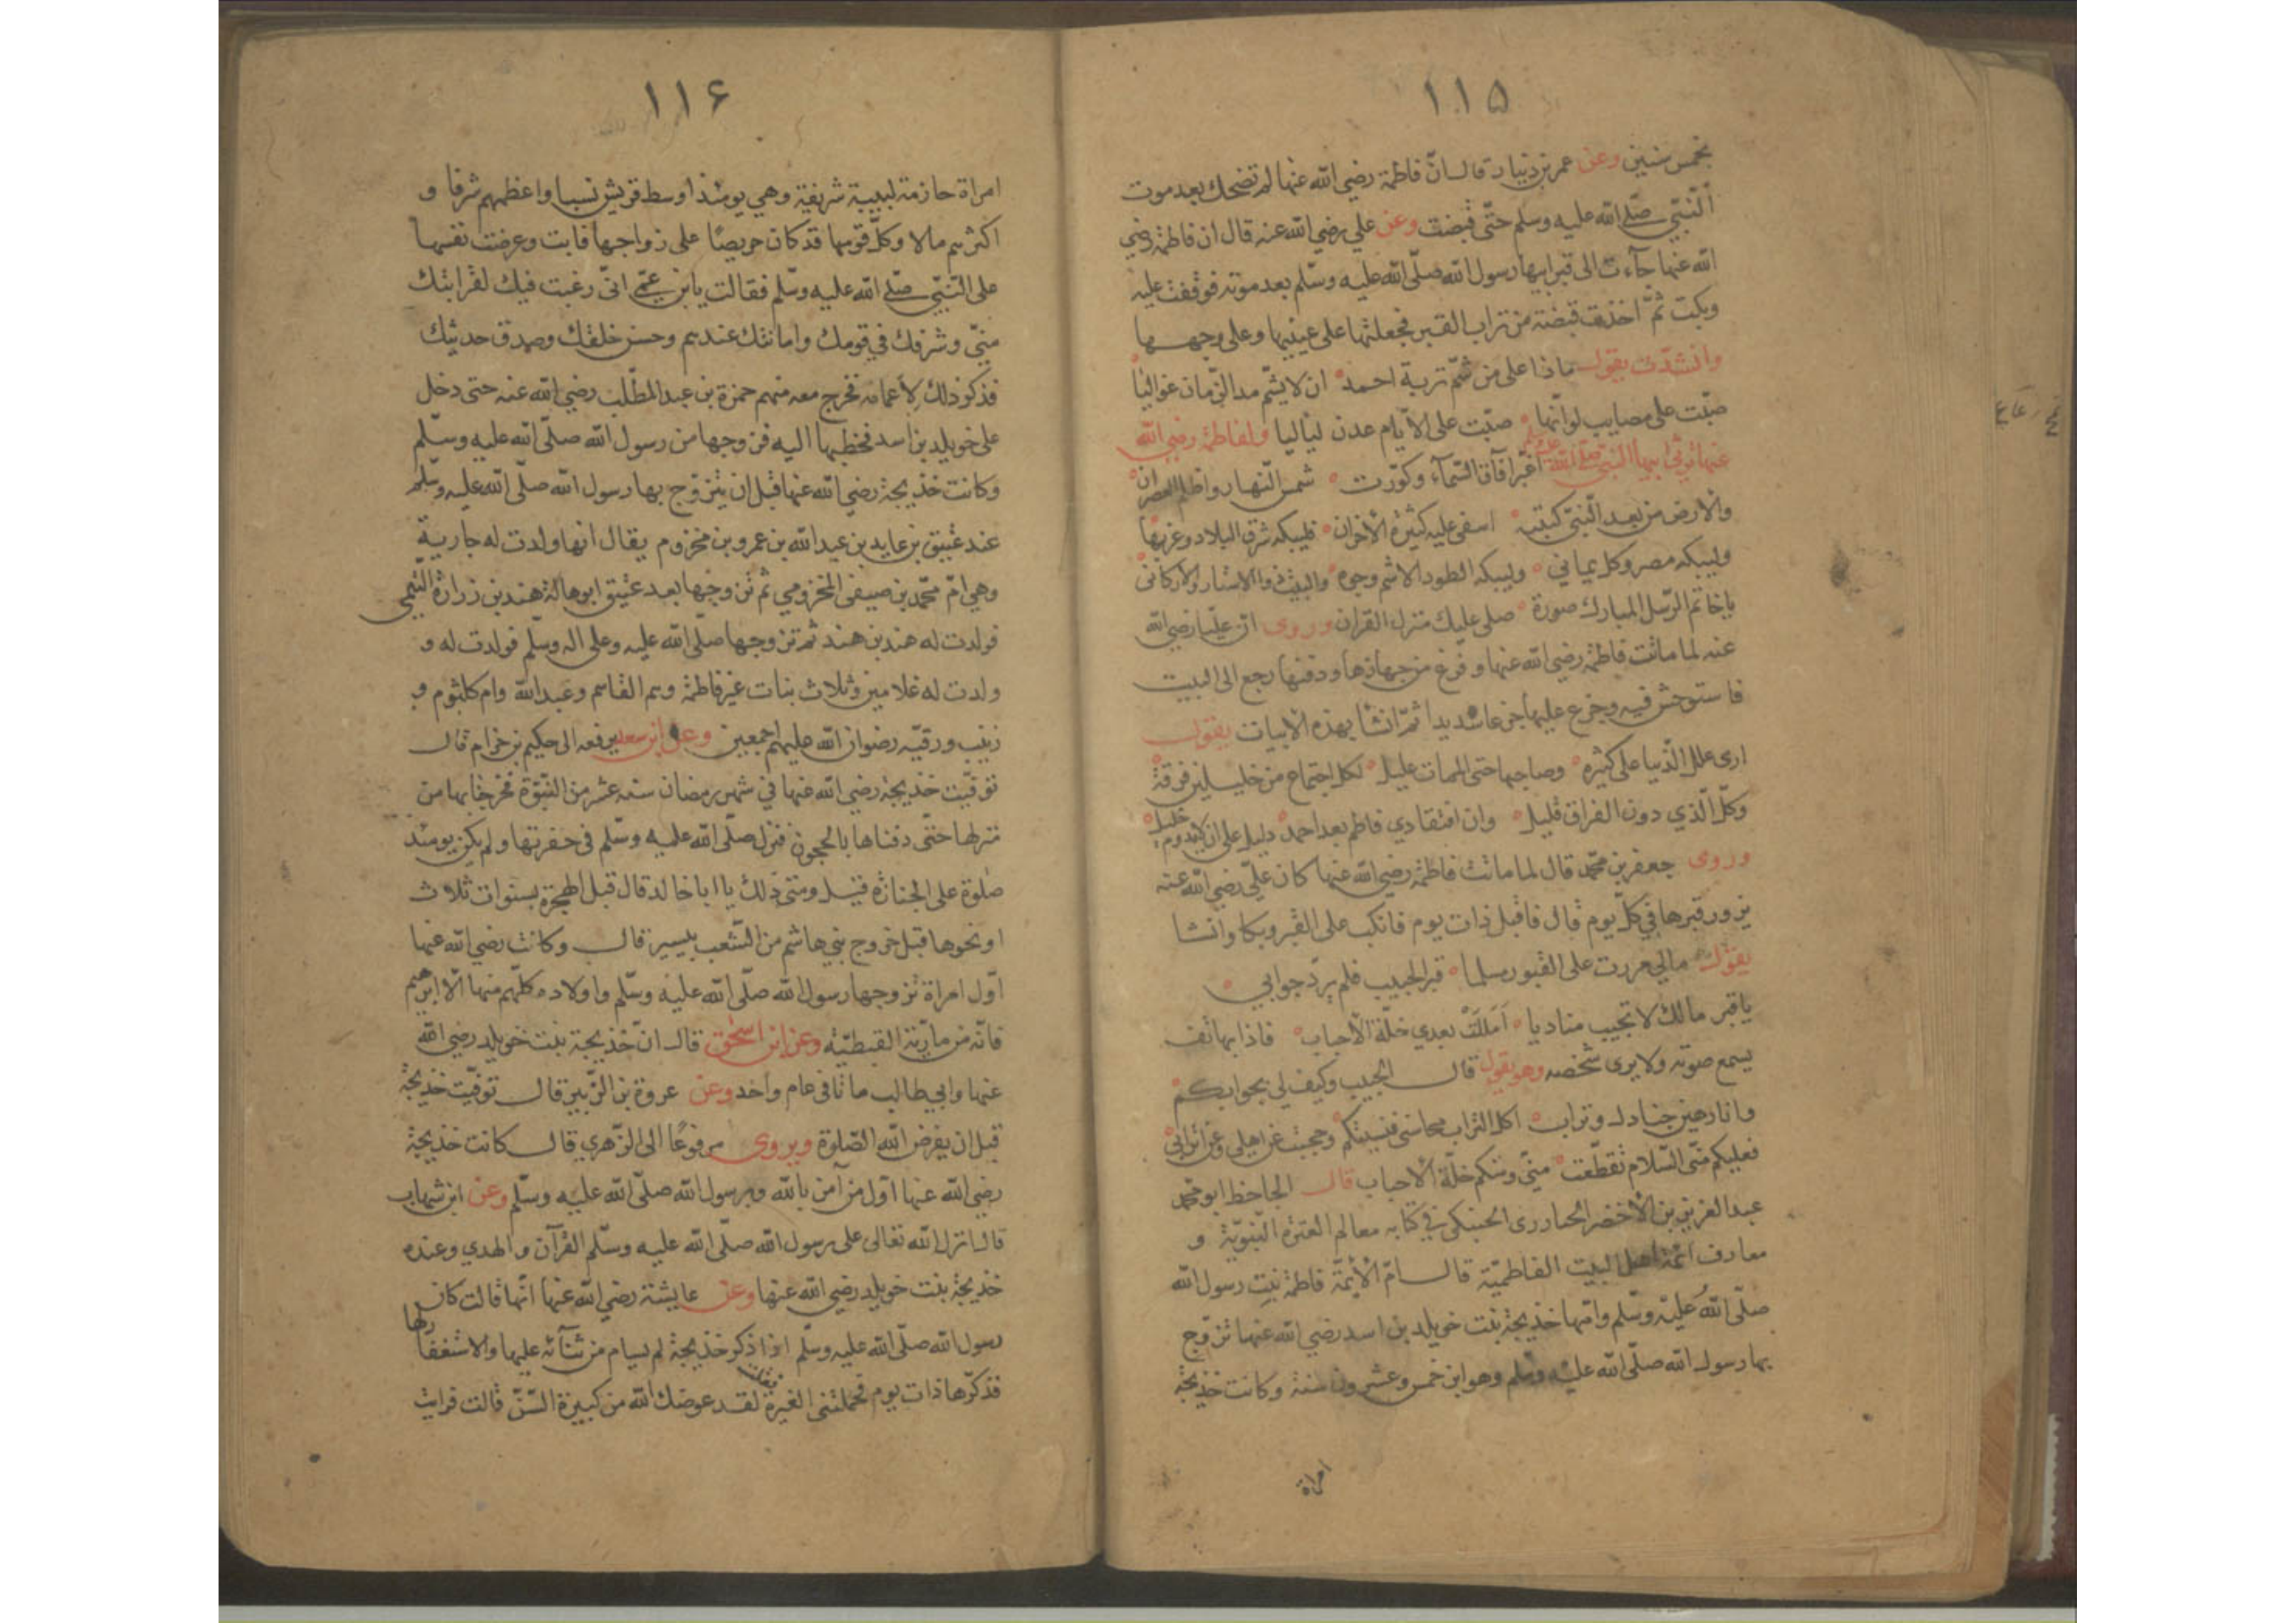 ١١۵
بخمس سنين وعن عمر بن دينار قال ان فاطمة رضي الله عنها لم تضحك بعد موت
النبي صلى الله عليه وسلم حتى قبضت وعن علي رضي الله عنه قال ان فاطمة رضي
الله عنها جاءت الى قبر ابيها رسول الله صلى الله عليه وسلم بعد موته فوقفت عليه
وبكت ثم اخذت قبضة من تراب القبر فجعلتها على عينيها وعلى وجهها
وانشدت يقول ماذا على من شم تربة احمد ان لا يشم مدا الزمان غواليا
صبت على مصايب لو انها صبت على الايام عدن لياليا ولفاطمة رضي الله
عنها ترثي ابيها النبي صلى الله عليه وسلم اغبر افاق السماء وكورت شمس النهار واظلم العصران
والارض من بعد النبي كئيبة اسفى عليه كثيرة الاحزان فليبكه شرق البلاد وغربها
وليبكه مصر وكل يماني وليبكه الطود الاشم وجوه والبيت ذو الاستار والاركانى
يا خاتم الرسل المبارك صورة صلى عليك منزل القران وروى ان عليا رضي الله
عنه لما ماتت فاطمة رضي الله عنها وفرغ من جهازها ودفنها رجع الى البيت
فاستوحش فيه وجزع عليها جزعا شديدا ثم انشا بهذه الابيات يقول
ارى علل الدنيا على كثيره وصاحبها حتى الممات عليل لكل اجتماع من خليلين فرقة
وكل الذي دون الفراق قليل وان افتقادي فاطم بعد احمد دليل على ان لا يدوم خليل
وروى جعفر بن محمد قال لما ماتت فاطمة رضي الله عنها كان علي رضي الله عنه
يزور قبرها في كل يوم قال فاقبل ذات يوم فانكب على القبر وبكا وانشا
يقول مالي مررت على القبور مسلما قبر الحبيب فلم يرد جوابي
يا قبر مالك لا تجيب مناديا امللت بعدي خلة الاحباب فاذا بهاتف
يسمع صوته ولا يرى شخصه وهو يقول قال الحبيب وكيف لي بجوابكم
وانا رهين جنادل وتراب اكل التراب محاسنى فنسيتكم وحجبت عن اهلى وعن اترابي
فعليكم منى السلام تقطعت منى ومنكم خلة الاحباب قال الحافظ ابو محمد
عبد العزيز بن الاخضر الجنابذى الحنبلى في كتابه معالم العترة النبوية و
معارف ائمة اهل البيت الفاطمية قال ام الائمة فاطمة بنت رسول الله
صلى الله عليه وسلم وامها خديجة بنت خويلد بن اسد رضي الله عنها تزوج
بها رسول الله صلى الله عليه وسلم وهو ابن خمس وعشرون سنة وكانت خديجة
امراة
١١۶
امراة حازمة لبيبة شريفة وهي يومئذ اوسط قريش نسبا واعظمهم شرفا و
اكثرهم مالا وكل قومها قد كان حريصا على زواجها فابت وعرضت نفسها
على النبي صلى الله عليه وسلم فقالت يا بن عمى انى رغبت فيك لقرابتك
منى وشرفك في قومك وامانتك عندهم وحسن خلقك وصدق حديثك
فذكر ذلك لاعمامه فخرج معه منهم حمزة بن عبد المطلب رضي الله عنه حتى دخل
على خويلد بن اسد فخطبها اليه فزوجها من رسول الله صلى الله عليه وسلم
وكانت خديجة رضي الله عنها قبل ان يتزوج بها رسول الله صلى الله عليه وسلم
عند عتيق بن عايد بن عبد الله بن عمرو بن مخزوم يقال انها ولدت له جارية
وهي ام محمد بن صيفى المخزومي ثم تزوجها بعد عتيق ابو هالة هند بن زرارة التيمى
فولدت له هند بن هند ثم تزوجها صلى الله عليه وعلى اله وسلم فولدت له و
ولدت له غلامين وثلاث بنات غير فاطمة وهم القاسم وعبد الله وام كلثوم و
زينب ورقيه رضوان الله عليهم اجمعين وعن ابن سعد يرفعه الى حكيم بن حزام قال
توفيت خديجة رضي الله عنها في شهر رمضان سنه عشر من النبوة فخرجنا بها من
منزلها حتى دفناها بالحجون فنزل صلى الله عليه وسلم فى حفرتها ولم يكن يومئذ
صلوة على الجنازة قيل ومتى ذلك يا ابا خالد قال قبل الهجرة بسنوات ثلاث
او نحوها قبل خروج بني هاشم من الشعب بيسير قال وكانت رضي الله عنها
اول امراة تزوجها رسول الله صلى الله عليه وسلم واولاده كلهم منها الا ابرهيم
فانه من مارية القبطية وعن ابن اسحق قال ان خديجة بنت خويلد رضي الله
عنها وابي طالب ماتا فى عام واحد وعن عروة بن الزبير قال توفيت خديجة
قبل ان يفرض الله الصلوة ويروى مرفوعا الى الزهري قال كانت خديجة
رضي الله عنها اول من آمن بالله وبرسول الله صلى الله عليه وسلم وعن ابن شهاب
قال انزل الله تعالى على رسول الله صلى الله عليه وسلم القرآن والهدي وعنده
خديجة بنت خويلد رضي الله عنها وعن عايشة رضي الله عنها انها قالت كان
رسول الله صلى الله عليه وسلم اذا ذكر خديجة لم يسام من ثنآئه عليها والاستغفار لها
فذكرها ذات يوم فحملتنى الغيرة فقلت لقد عوضك الله من كبيرة السن قالت فرايت